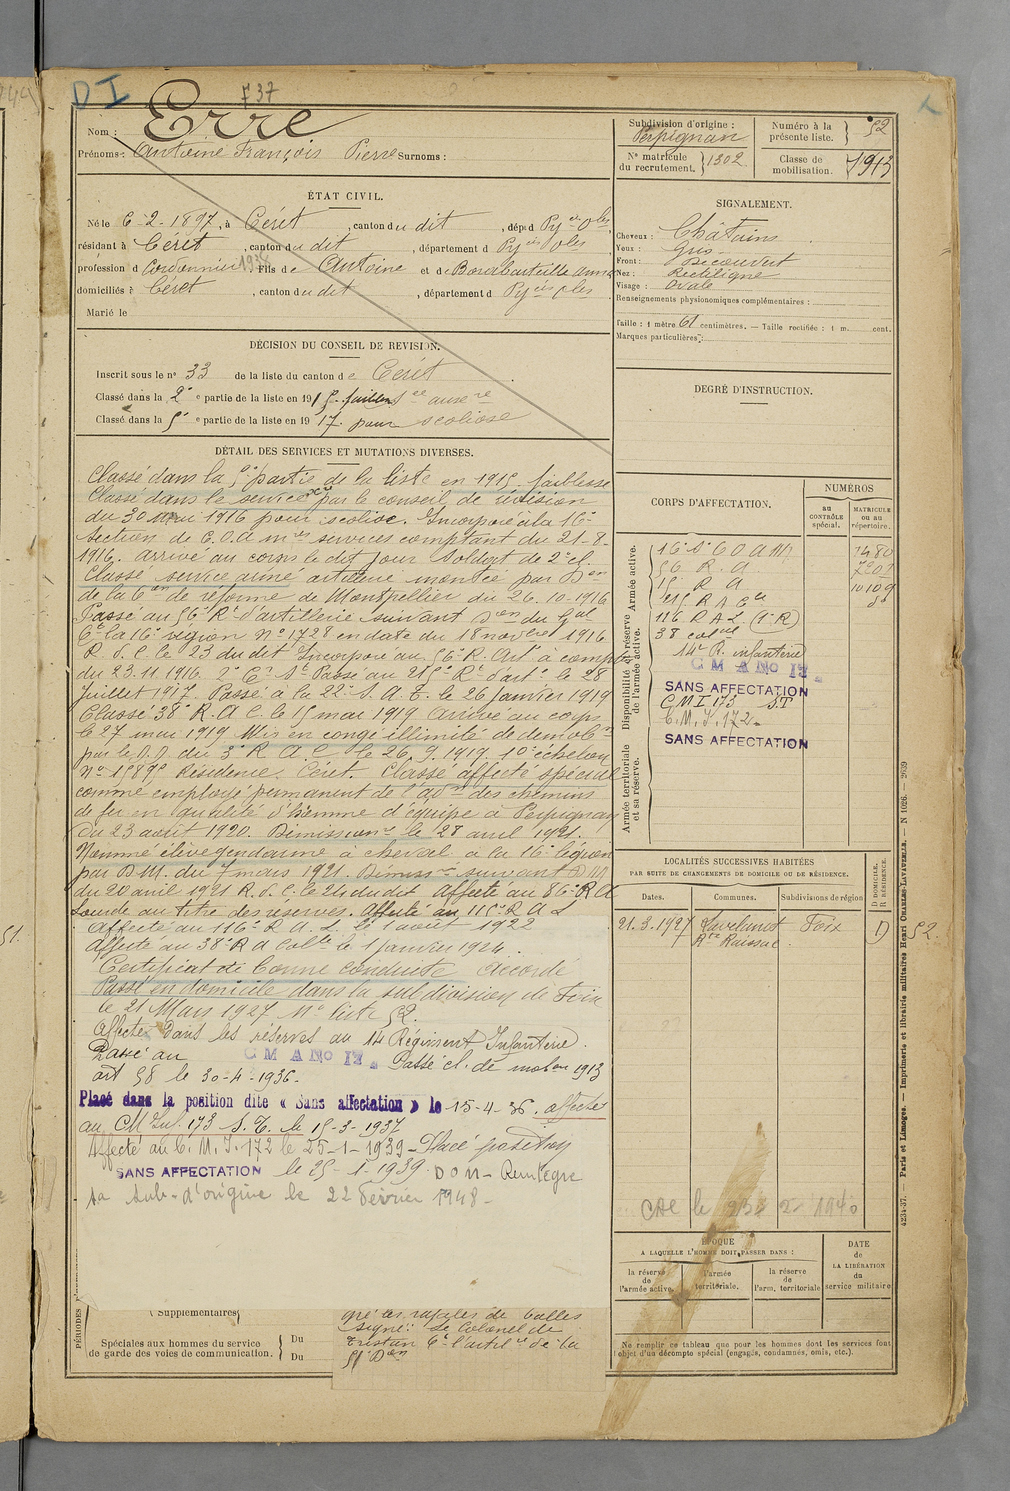 D I
F 37
Nom : Erre
Prénoms : Antoine François Pierre Surnoms :
Subdivision d'origine :
Perpignan
Numéro à la présente liste. } 52
N° matricule du recrutement. } 1302
Classe de mobilisation. } 1913
ÉTAT CIVIL.
Né le 6-2-1897, à Céret, canton du dit, dép d Py ées Oles
résidant à Céret, canton du dit, département d Py ées Oles
profession d Cordonnier Fils de Antoine et de
domiciliés à Céret, canton du dit, département d Py ées Oles
Marié le
DÉCISION DU CONSEIL DE REVISION.
Inscrit sous le n° 33 de la liste du canton de Céret
Classé dans la 2e partie de la liste en 1915
Classé dans la 5e partie de la liste en 1917 pour scoliose
SIGNALEMENT.
Cheveux : Châtains
Yeux : Gris
Front : Découvert
Nez : Rectiligne
Visage : Ovale
Renseignements physionomiques complémentaires :
Taille : 1 mètre 61 centimètres. — Taille rectifiée : 1 m. cent.
Marques particulières :
DEGRÉ D'INSTRUCTION.
DÉTAIL DES SERVICES ET MUTATIONS DIVERSES.
Classé dans la 5e partie de la liste en 1915 faiblesse
Classé dans le service par le conseil de révision
du 30 mai 1916 pour scoliose. Incorporé à la 16e
section de C.O.A. mres services comptant du 21-8-
1916. arrivé au corps le dit jour soldat de 2e cl.
Classé service armé artillerie montée par Don
de la Con de réforme de Montpellier du 26-10-1916
Passé au 56e Rt d'artillerie suivant Don du Gal
Ct la 16e région No 1728 en date du 18 novbre 1916
R.d.C. le 23 du dit Incorporé au 56e R. Art. à compt
du 23.11.1916. 2e Cr St Passé au 215e Rt d'art le 28
Juillet 1917. Passé à la 22e S.A.T. le 26 Janvier 1919
Classé 38e R.A.C. le 15 mai 1919 arrivé au corps
le 27 mai 1919 Mis en congé illimité de démobon
par le D.D. du 3e R.A.C. le 26.9.1919. 10e échelon
No 1589 Résidence Céret. Classé affecté spécial
comme employé permanent de l'adon des chemins
de fer en qualité d'homme d'équipe à Perpignan
du 23 août 1920. Démissionre le 28 avril 1921.
Nommé élève gendarme à cheval à la 16e légion
par DM. du 7 mars 1921. Démissre suivant DM
du 20 avril 1921 R.d.C. le 24 du dit Affecté au 86e R A
Lourde au titre des réserves. Affecté au 115e R A L
Affecté au 116e R.A.L. le 1 août 1922
Affecté au 38e R A le 1 janvier 1924.
Certificat de bonne conduite Accordé
Passé en domicile dans la subdivision de Foix
le 21 Mars 1927 No liste 52.
Affecté dans les réserves au 14e Régiment Infanterie.
Passé au C M A No 17. Passé cl. de mobon 1913
art 58 le 30-4-1936.
Placé dans la position dite « Sans affectation » le 15-4-36. affecté
au C M Inf. 173 S.T. le 15-3-1937
Affecté au C.M.I. 172 le 25-1-1939 Placé position
SANS AFFECTATION le 25-1-1939. DOM- Réintègre
sa Sub-d'origine le 22 Février 1948-
CORPS D'AFFECTATION.
NUMÉROS
au CONTRÔLE spécial.
MATRICULE ou au répertoire.
Armée active.
Disponibilité et réserve de l'armée active.
Armée territoriale et sa réserve.
16e S C O A M 7480
56 R.A.
115 R A L
116 R A L
38
14e R. infanterie
C M A No 17.
SANS AFFECTATION
C M I 173 S.T
C.M.I. 172-
SANS AFFECTATION
LOCALITÉS SUCCESSIVES HABITÉES
PAR SUITE DE CHANGEMENTS DE DOMICILE OU DE RÉSIDENCE.
Dates. Communes. Subdivisions de région D DOMICILE. R RÉSIDENCE.
21.3.1927 Lavelanet Foix D 52.
51.
ÉPOQUE
A LAQUELLE L'HOMME DOIT PASSER DANS :
la réserve de l'armée active.
l'armée territoriale.
la réserve de l'arm. territoriale
DATE de LA LIBÉRATION du service militaire
Ne remplir ce tableau que pour les hommes dont les services font l'objet d'un décompte spécial (engagés, condamnés, omis, etc.).
Supplémentaires
Spéciales aux hommes du service de garde des voies de communication. { Du
Du
gré les rafales de balles
signé: Le Colonel de
Ct l'artil ie de la
Don
4234-37. — Paris et Limoges. — Imprimerie et librairie militaires Henri CHARLES-LAVAUZELLE. — N 1026. — 2639